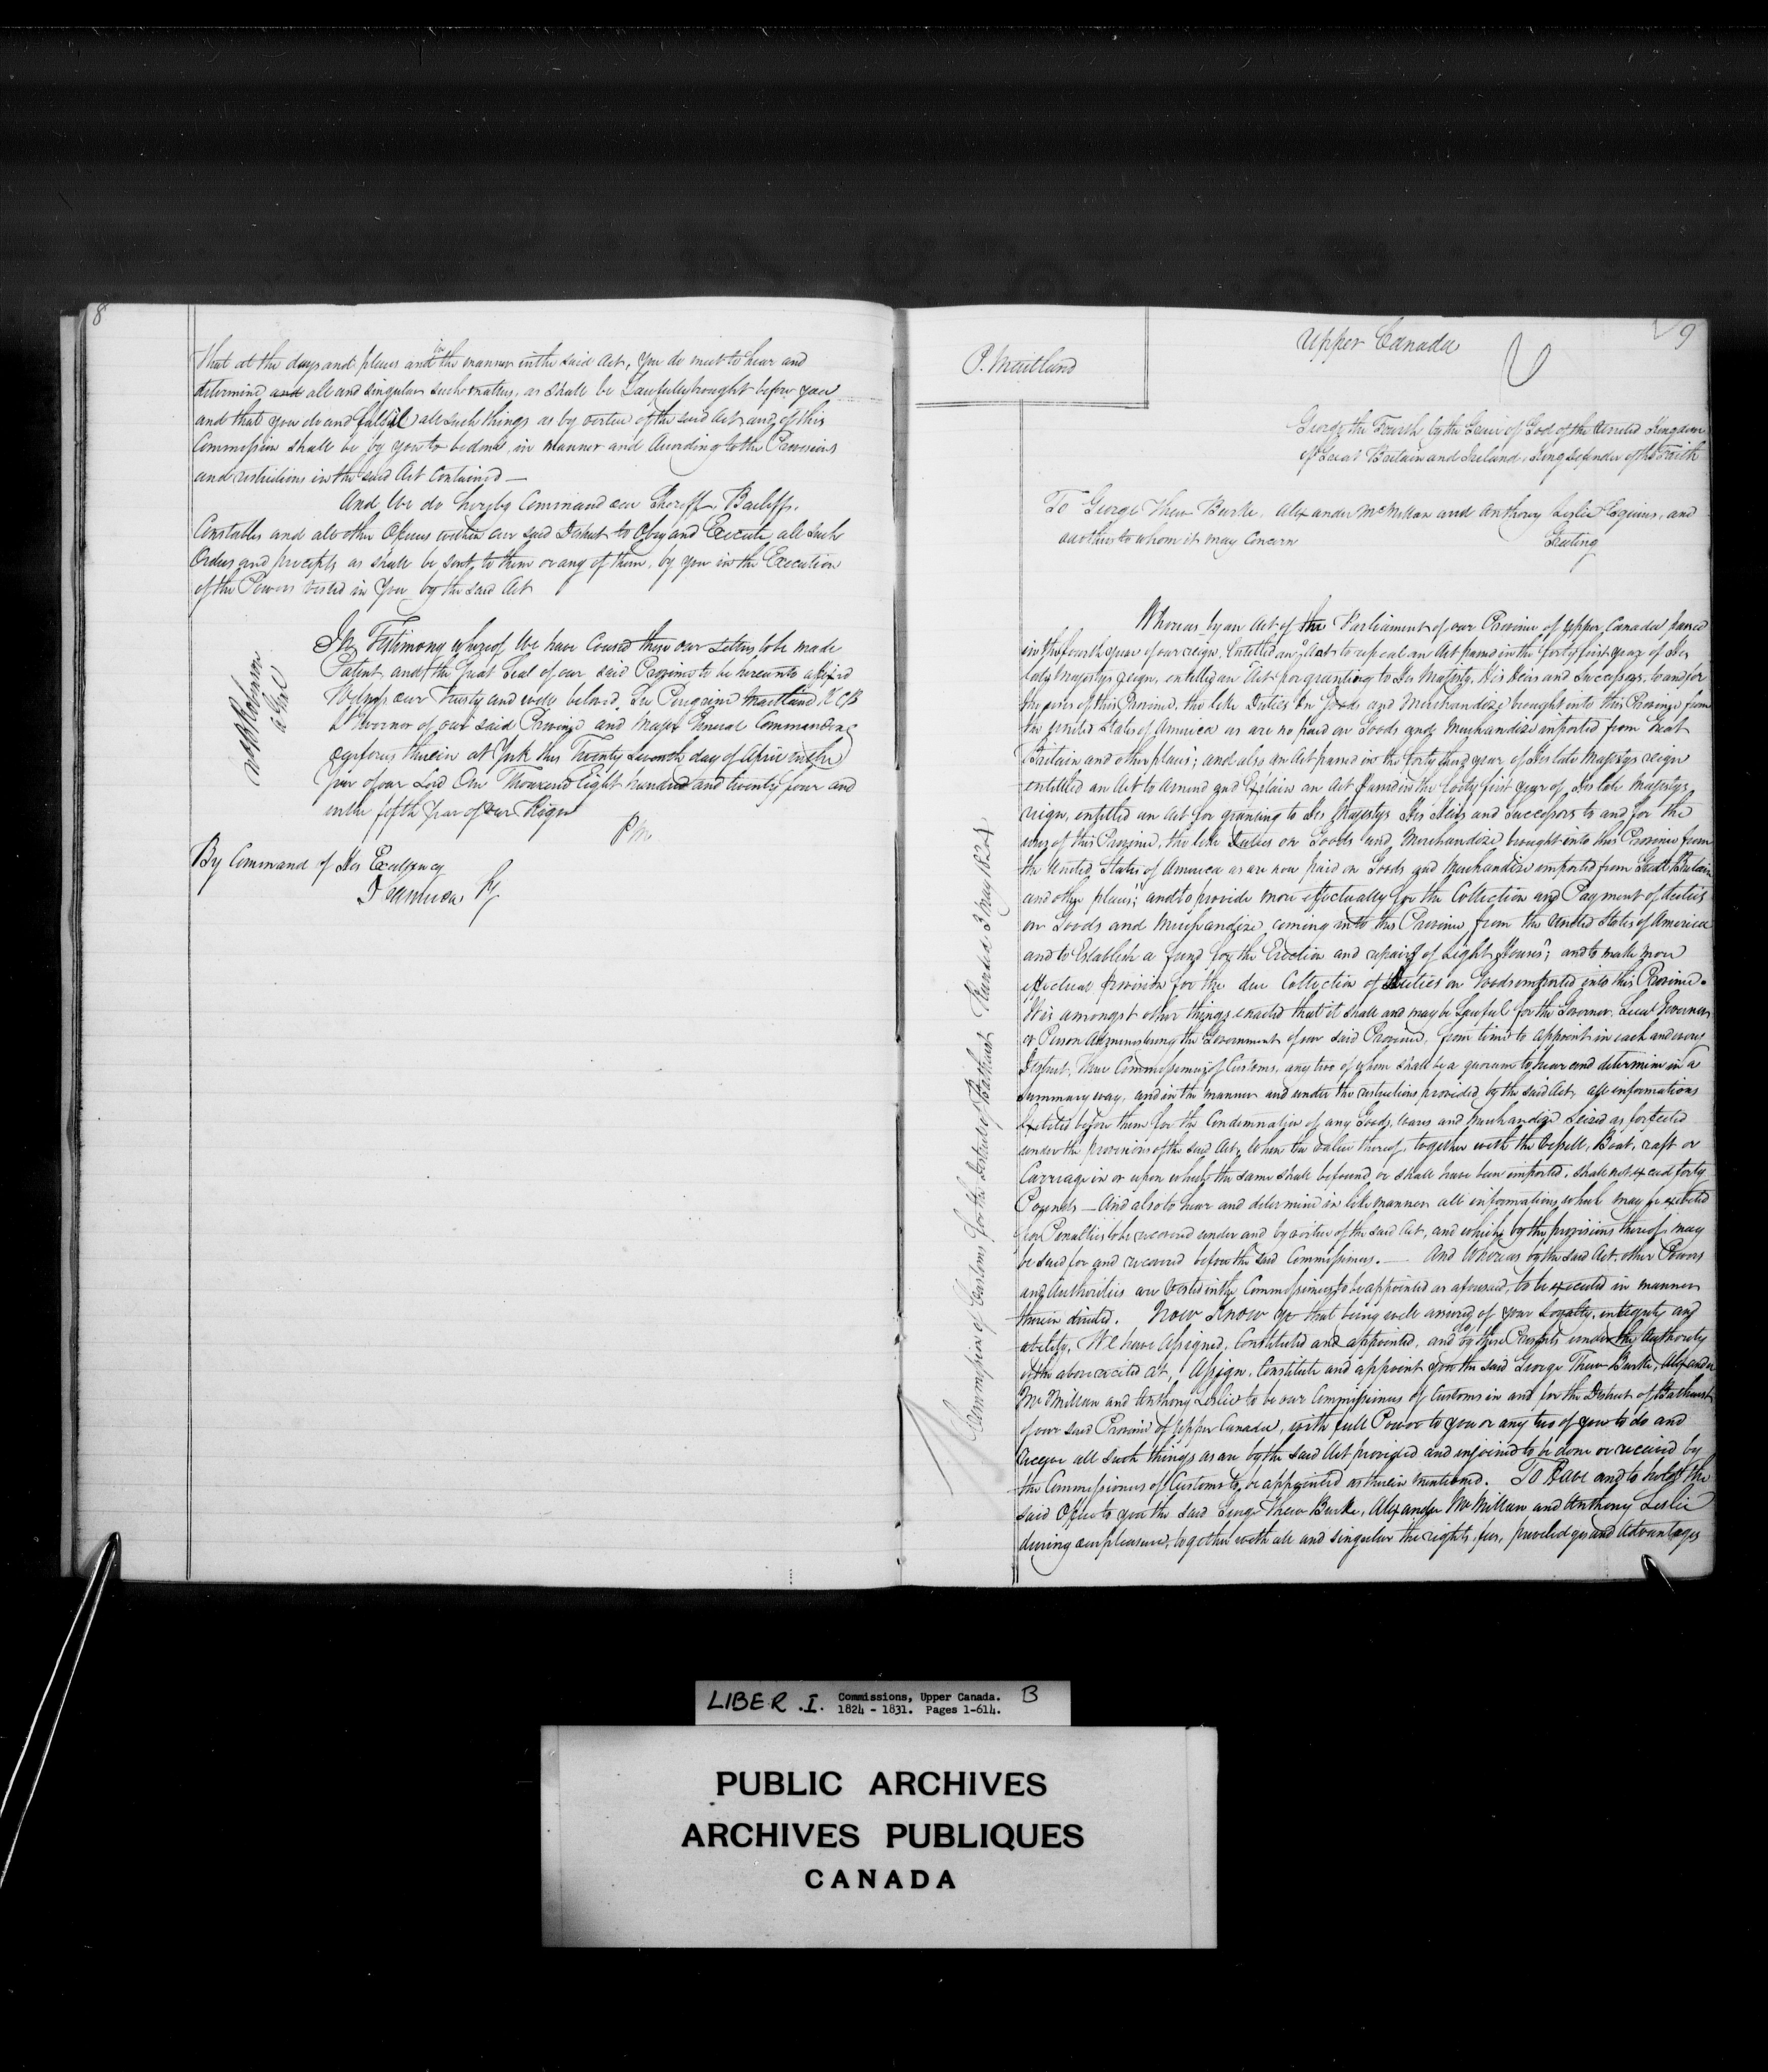 8
That at the days and places and in the manner in the said Act, you do meet to hear and
determine and all and singular such matters, as shall be Lawfully brought before you
and that you do and fulfil all such things as by virtue of the said Act and of this
Commission shall be by you to be done, in manner and According to the Provisions
and restrictions in the said Act Contained —
And We do hereby Command our Sheriff, Bailiffs,
Constables and all other Officers within our said District to Obey and Execute all such
Orders and precepts as shall be sent to them or any of them, by you in the Execution
of the Powers vested in You by the said Act
In Testimony whereof We have Caused these our Letters to be made
Patent and the Great Seal of our said Province to be hereunto affixed
Witness our Trusty and well beloved Sir Peregrine Maitland K C B
Lt Governor of our said Province and Major General Commanding
our forces therein at York this Twenty Seventh day of April in the
year of our Lord One Thousand Eight hundred and twenty four and
in the fifth Year of our Reign
P M
Robinson
By Command of His Excellency
9
P. Maitland
Upper Canada
George the Fourth by the Grace of God of the United Kingdom
of Great Britain and Ireland, King Defender of the Faith
To George Thew Burke, Alexander McMillan and Anthony Leslie Esquires, and
all others to whom it may Concern
Greeting
Commission of Customs for the District of Bathurst Recorded 3 May 1824
Whereas by an Act of the Parliament of our Province of Upper Canada passed
in the fourth year of our reign, Entitled an "Act to repeal an Act passed in the forty first year of His
late Majestys reign, entitled an "Act for granting to His Majesty, His Heirs and Successors, to and for
the uses of this Province, the like Duties on Goods and Merchandize brought into this Province from
the United States of America as are no paid on Goods and Merchandize imported from Great
Britain and other places"; and also an Act passed in the forty third year of His late Majestys reign
entitled an Act to Amend and Explain an Act passed in the forty first year of His late Majestys
reign, entitled an Act for granting to His Majestys His Heirs and Successors to and for the
uses of this Province, the like Duties on Goods and Merchandize brought into this Province from
the United States of America as are now paid on Goods and Merchandize imported from Great Britain
and other places"; and to provide more effectually for the Collection and Payment of duties
on Goods and Merchandize, coming into this Province, from the United States of America
and to Establish a fund for the Erection and repairs of Light Houses"; and to make more
effectual provision for the due Collection of Duties on Goods imported into this Province.
It is amongst other things enacted that it shall and may be Lawful for the Governor, Lieut Governor
or Person Administering the Government of our said Province, from time to appoint in each and every
District, Three Commissioners of Customs, any two of whom shall be a quorum to hear and determine in a
summary way, and in the manner and under the restrictions provided by the said Act, all informations
Exhibited before them for the Condemnation of any Goods, wares and merchandize seized as forfeited
under the provisions of the said Act, When the value thereof, together with the Vessell, Boat, raft or
Carriage in or upon which the same shall be found, or shall have been imported, shall not exceed forty
Pounds — And also to hear and determine in like manner all informations which may be exhibited
for Penalties to be recovered under and by virtue of the said Act, and which by the provisions thereof may
be sued for and recovered before the said Commissioners. — And Whereas by the said Act other Powers
and Authorities are Vested in the Commissioners to be appointed as aforesaid, to be executed in manner
therein directed. Now Know Ye that being well assured of your Loyalty, integrity and
ability, We have Assigned, Constituted and appointed, and do by these Presents under the Authority
of the above recited Act, Assign, Constitute and appoint you the said George Thew Burke, Alexander
McMillan and Anthony Leslie to be our Commissioners of Customs in and for the District of Bathurst
of our said Province of Upper Canada, with full Power to you or any two of you to do and
receive all such things as are by the said Act provided and enjoined to be done or received by
the Commissioners of Customs to be appointed as therein mentioned. To Have and to hold the
said Office to you the said George Thew Burke, Alexander McMillan and Anthony Leslie
during our pleasure, together with all and singular the rights, fees, priviledges and Advantages
LIBER .I. Commissions, Upper Canada. B
1824 - 1831. Pages 1-614.
PUBLIC ARCHIVES
ARCHIVES PUBLIQUES
CANADA